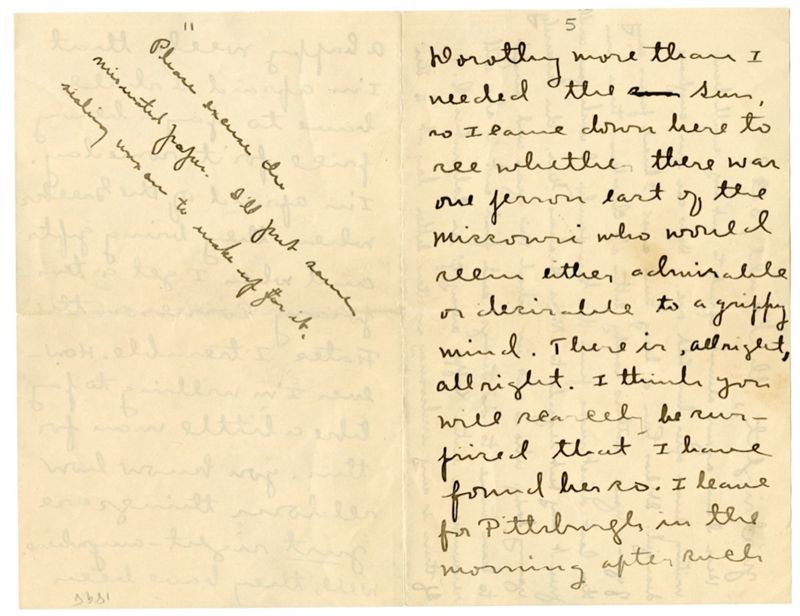 "
Please excuse the
mismated paper. I'll put some
sealing wax on to make up for it.
5
Dorothy more than I
needed the sun,
so I came down here to
see whether there was
one person east of the
Missouri who would
seem either admirable
or desirable to a grippy
mind. There is, allright,
allright. I think you
will scarcely be sur-
prised that I have
found her so. I leave
for Pittsburgh in the
morning after such